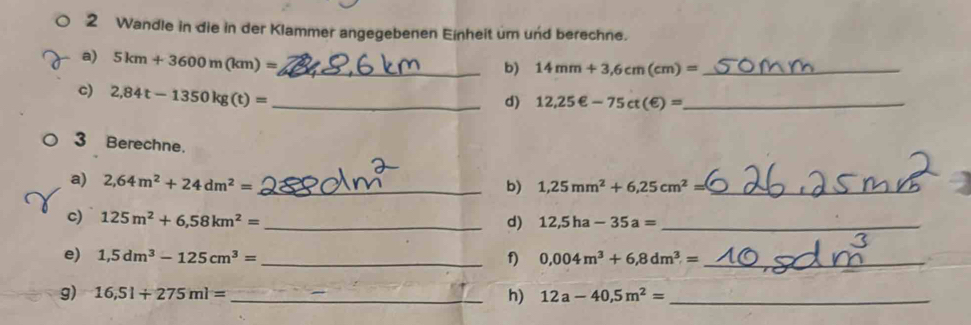 2 Wandle in die in der Klammer angegebenen Einheit um und berechne.
a) 5 km + 3600 m (km) = 8,6 km
b) 14 mm + 3,6 cm (cm) = 50 mm
c) 2,84 t − 1350 kg (t) =
d) 12,25 € − 75 ct (€) =
3 Berechne.
a) 2,64 m² + 24 dm² = 288 dm²
b) 1,25 mm² + 6,25 cm² = 626,25 mm²
c) 125 m² + 6,58 km² =
d) 12,5 ha − 35 a =
e) 1,5 dm³ − 125 cm³ =
f) 0,004 m³ + 6,8 dm³ = 10,8 dm³
g) 16,5 l + 275 ml = −
h) 12 a − 40,5 m² =